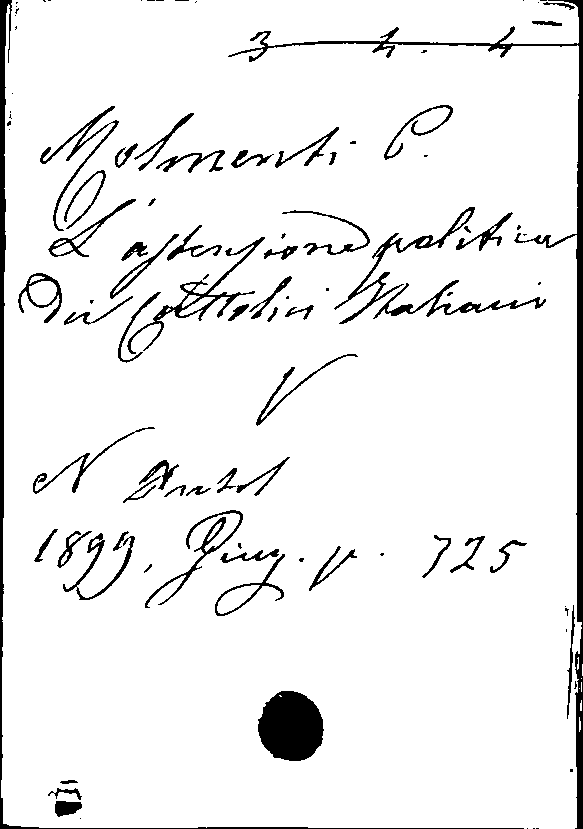 3 4. 4
Molmenti P.
L'astensione politica
dei Cattolici Italiani
V
N Antol
1899, Giug. p. 725